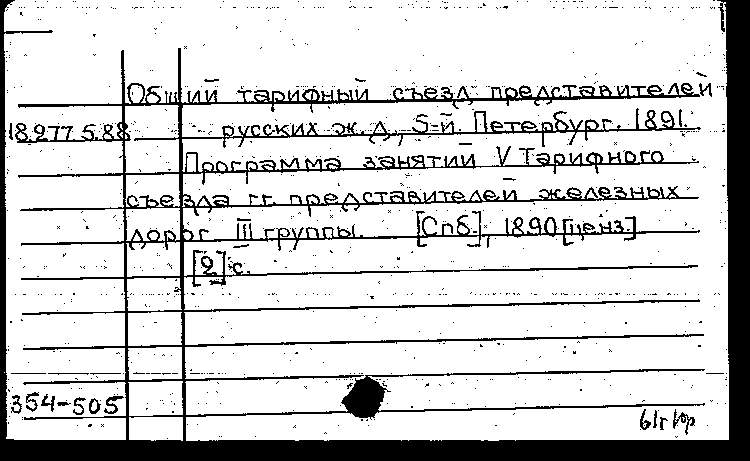 Общий тарифный съезд представителей
18.277.5.88. русских ж. д., 5-й. Петербург. 1891.
Программа занятий V Тарифного
съезда гг. представителей железных
дорог III группы. [Спб.], 1890 [ценз.]
[2] с.
354-505
61г